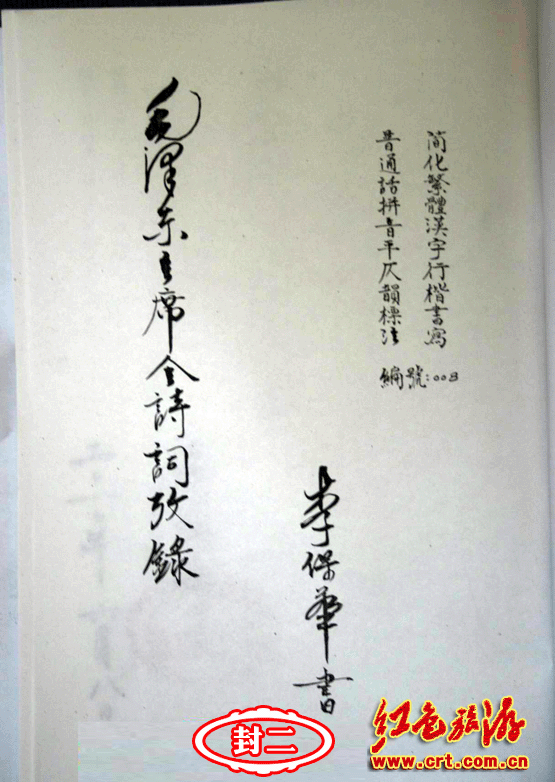 简化繁體漢字行楷書寫
普通話拼音平仄韻標注
編號:003
李保華書
毛澤东主席全詩詞放錄
封二
红色旅游
www.crt.com.cn